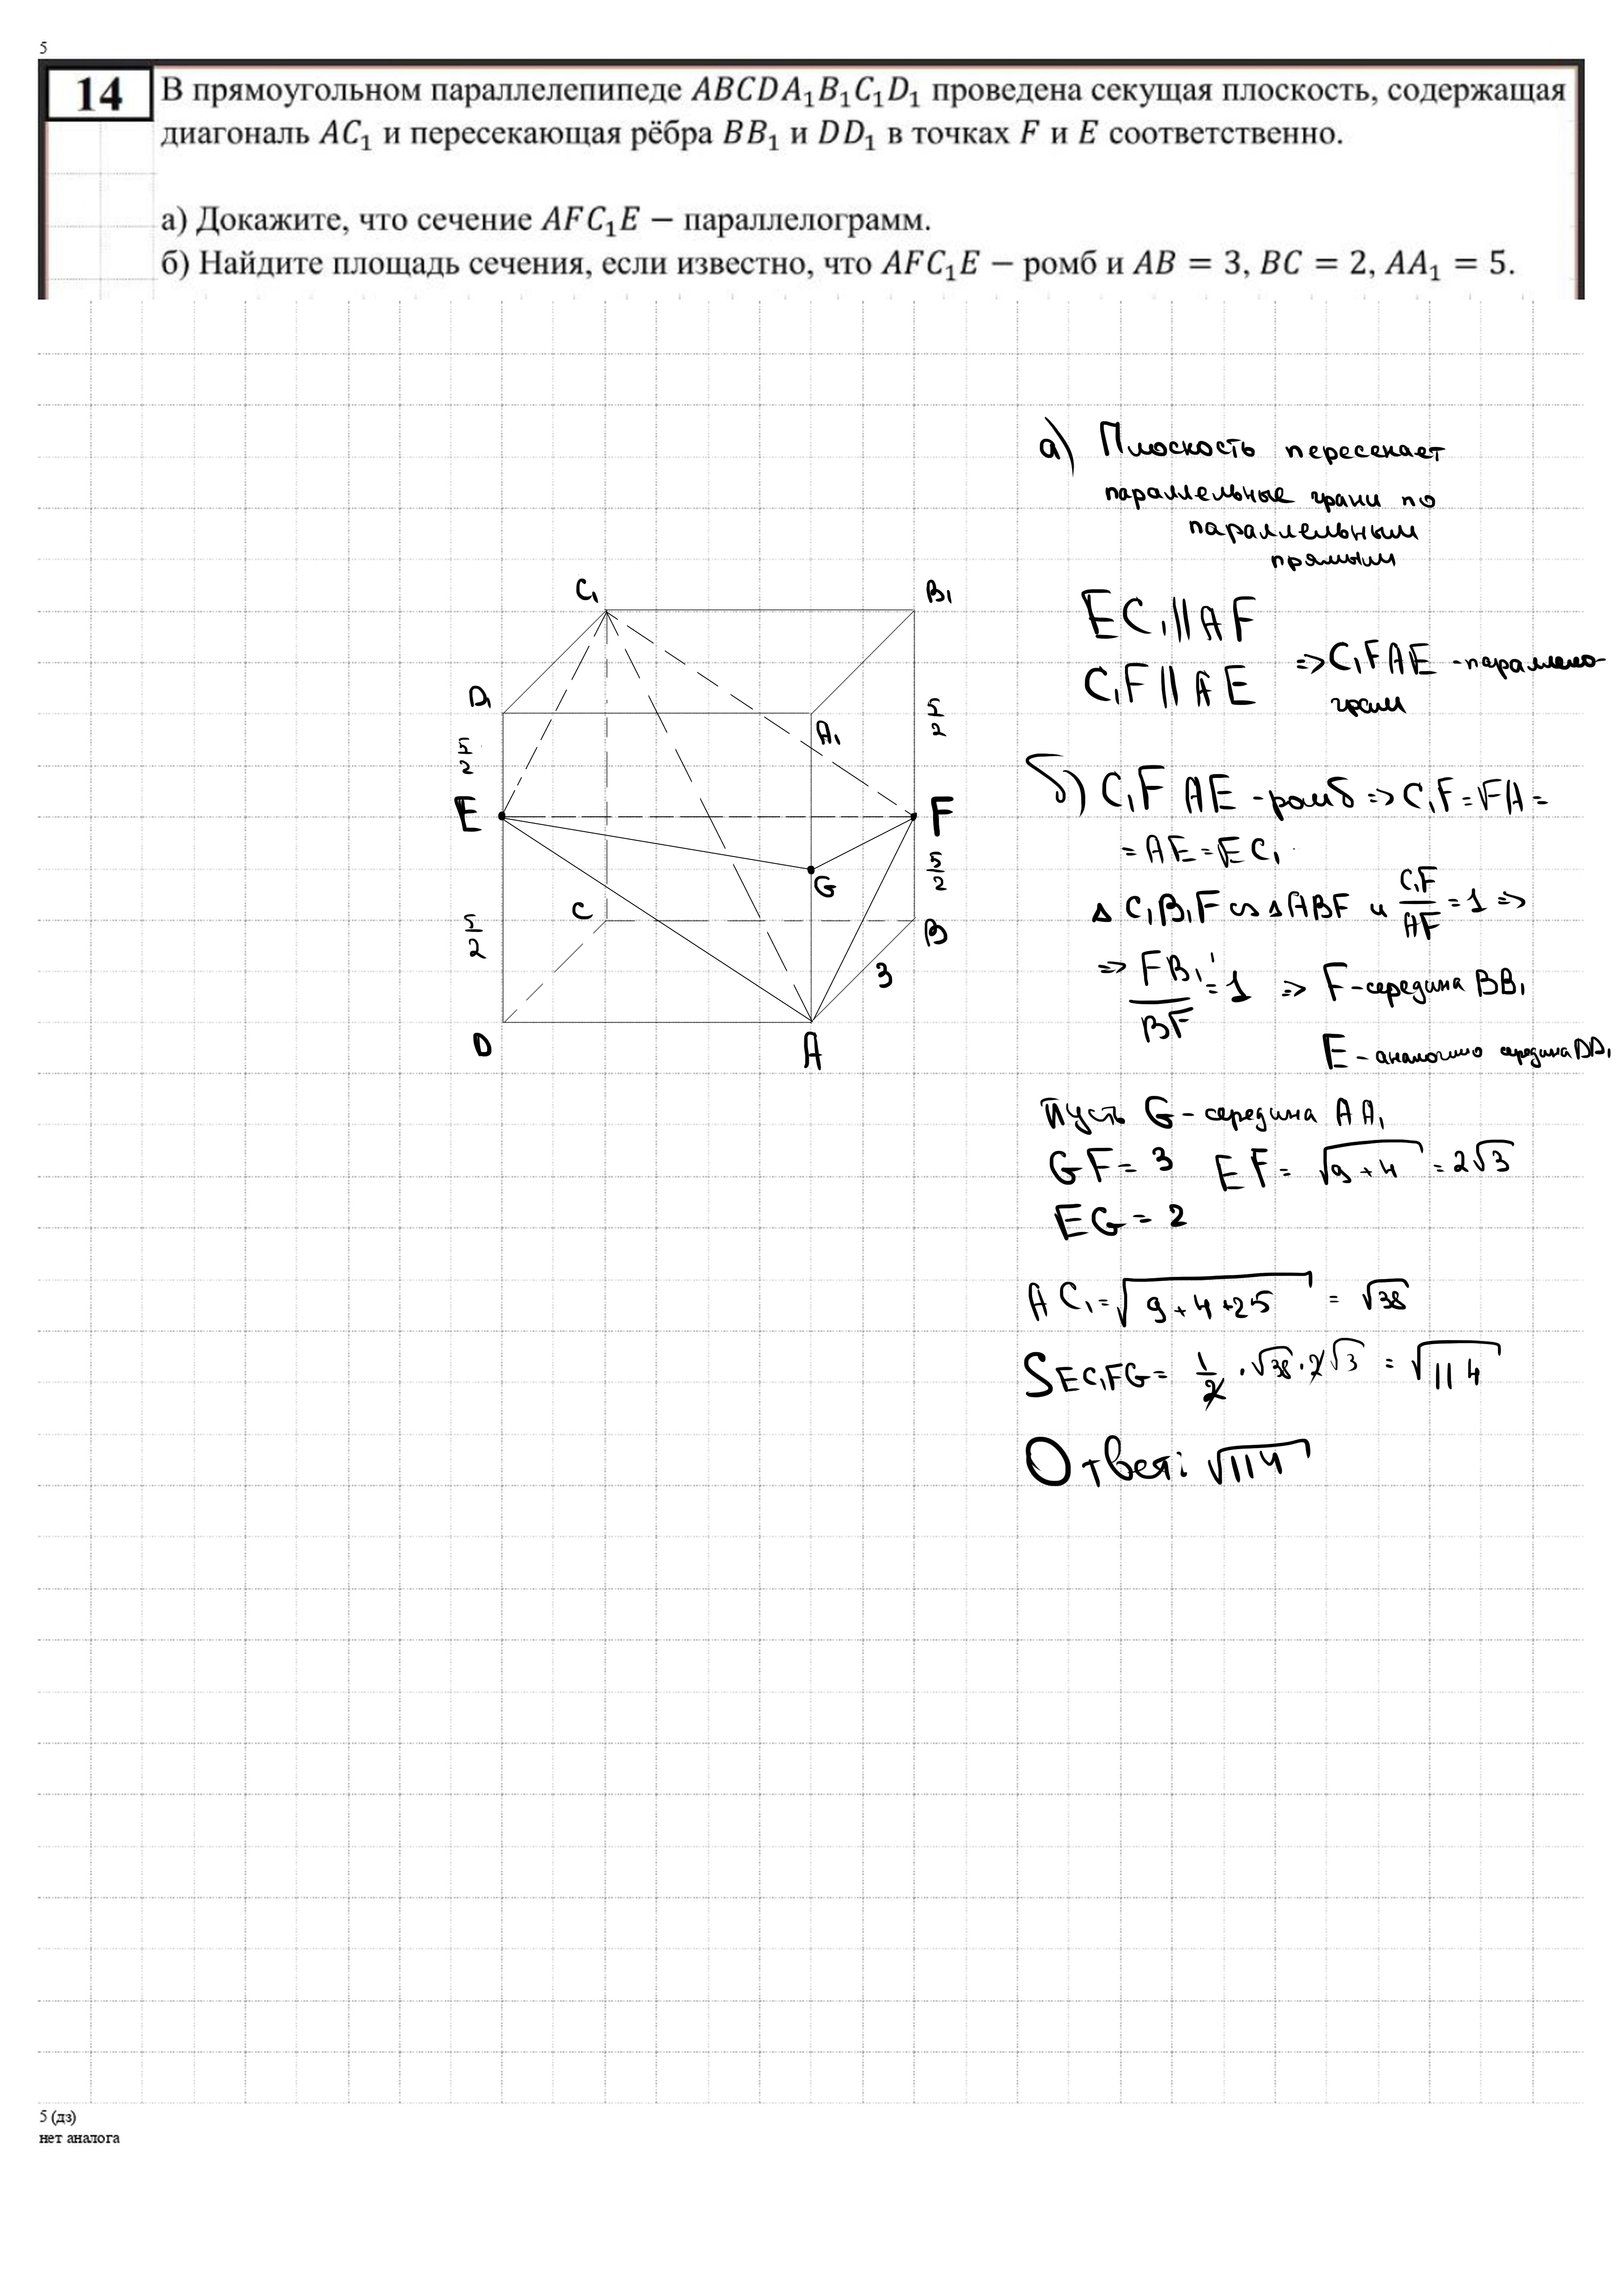 5
14
В прямоугольном параллелепипеде ABCDA₁B₁C₁D₁ проведена секущая плоскость, содержащая
диагональ AC₁ и пересекающая рёбра BB₁ и DD₁ в точках F и E соответственно.
а) Докажите, что сечение AFC₁E − параллелограмм.
б) Найдите площадь сечения, если известно, что AFC₁E − ромб и AB = 3, BC = 2, AA₁ = 5.
а) Плоскость пересекает
параллельные грани по
параллельным
прямым
EC₁ || AF
C₁F || AE => C₁FAE - параллело-
грам
б) C₁FAE - ромб => C₁F = FA =
= AE = EC₁
Δ C₁B₁F ∽ ΔABF и C₁F/AF = 1 =>
=> FB₁/BF = 1 => F - середина BB₁
E - аналогично середина DD₁
Пусть G - середина AA₁
GF = 3 EF = √9+4 = 2√3
EG = 2
AC₁ = √9+4+25 = √38
SEC₁FG = 1/2 · √38 · 2√3 = √114
Ответ: √114
C₁
B₁
D₁
A₁
5/2
5/2
E
F
5/2
G
C
5/2
B
3
D
A
5 (дз)
нет аналога